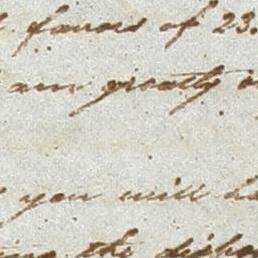 favors of 23.
am greatly
you will
the